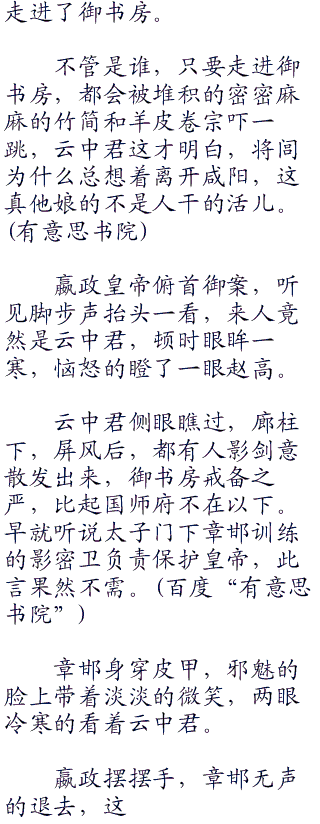 走进了御书房。
不管是谁，只要走进御
书房，都会被堆积的密密麻
麻的竹简和羊皮卷宗吓一
跳，云中君这才明白，将闾
为什么总想着离开咸阳，这
真他娘的不是人干的活儿。
(有意思书院)
嬴政皇帝俯首御案，听
见脚步声抬头一看，来人竟
然是云中君，顿时眼眸一
寒，恼怒的瞪了一眼赵高。
云中君侧眼瞧过，廊柱
下，屏风后，都有人影剑意
散发出来，御书房戒备之
严，比起国师府不在以下。
早就听说太子门下章邯训练
的影密卫负责保护皇帝，此
言果然不需。(百度“有意思
书院”)
章邯身穿皮甲，邪魅的
脸上带着淡淡的微笑，两眼
冷寒的看着云中君。
嬴政摆摆手，章邯无声
的退去，这